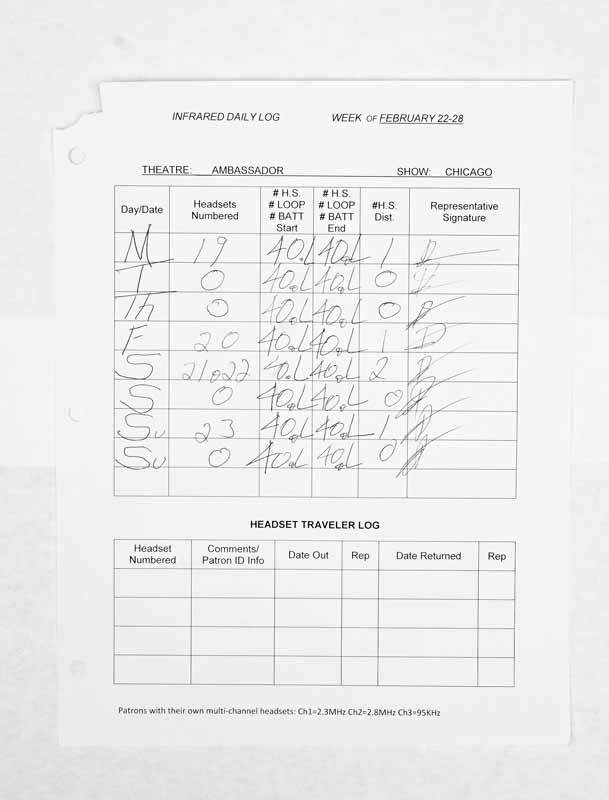 INFRARED DAILY LOG WEEK OF FEBRUARY 22-28
THEATRE: AMBASSADOR SHOW: CHICAGO
Day/Date Headsets Numbered # H.S. # LOOP # BATT Start # H.S. # LOOP # BATT End #H.S. Dist. Representative Signature
M 19 40.L 40.L 1
T 0 40.L 40.L 0
Th 0 40.L 40.L 0
F 20 40.L 40.L 1
S 21,22 40.L 40.L 2
S 0 40.L 40.L 0
Su 23 40.L 40.L 1
Su 0 40.L 40.L 0
HEADSET TRAVELER LOG
Headset Numbered Comments/ Patron ID Info Date Out Rep Date Returned Rep
Patrons with their own multi-channel headsets: Ch1=2.3MHz Ch2=2.8MHz Ch3=95KHz